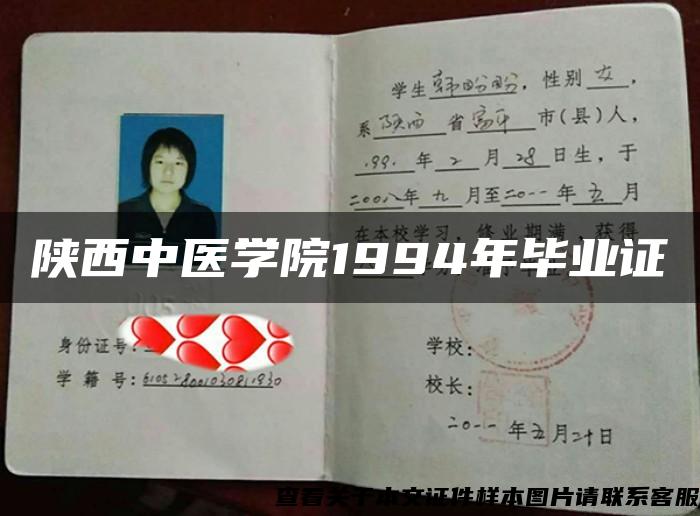 学生韩盼盼，性别女，
系陕西省富平市(县)人，
1991年2月28日生，于
二00八年九月至二0一一年五月
在本校学习，修业期满，获得
陕西中医学院1994年毕业证
身份证号:
学 籍 号: 610528001030811930
学校:
校长:
二0一一年五月二十日
查看关于本文证件样本图片请联系客服